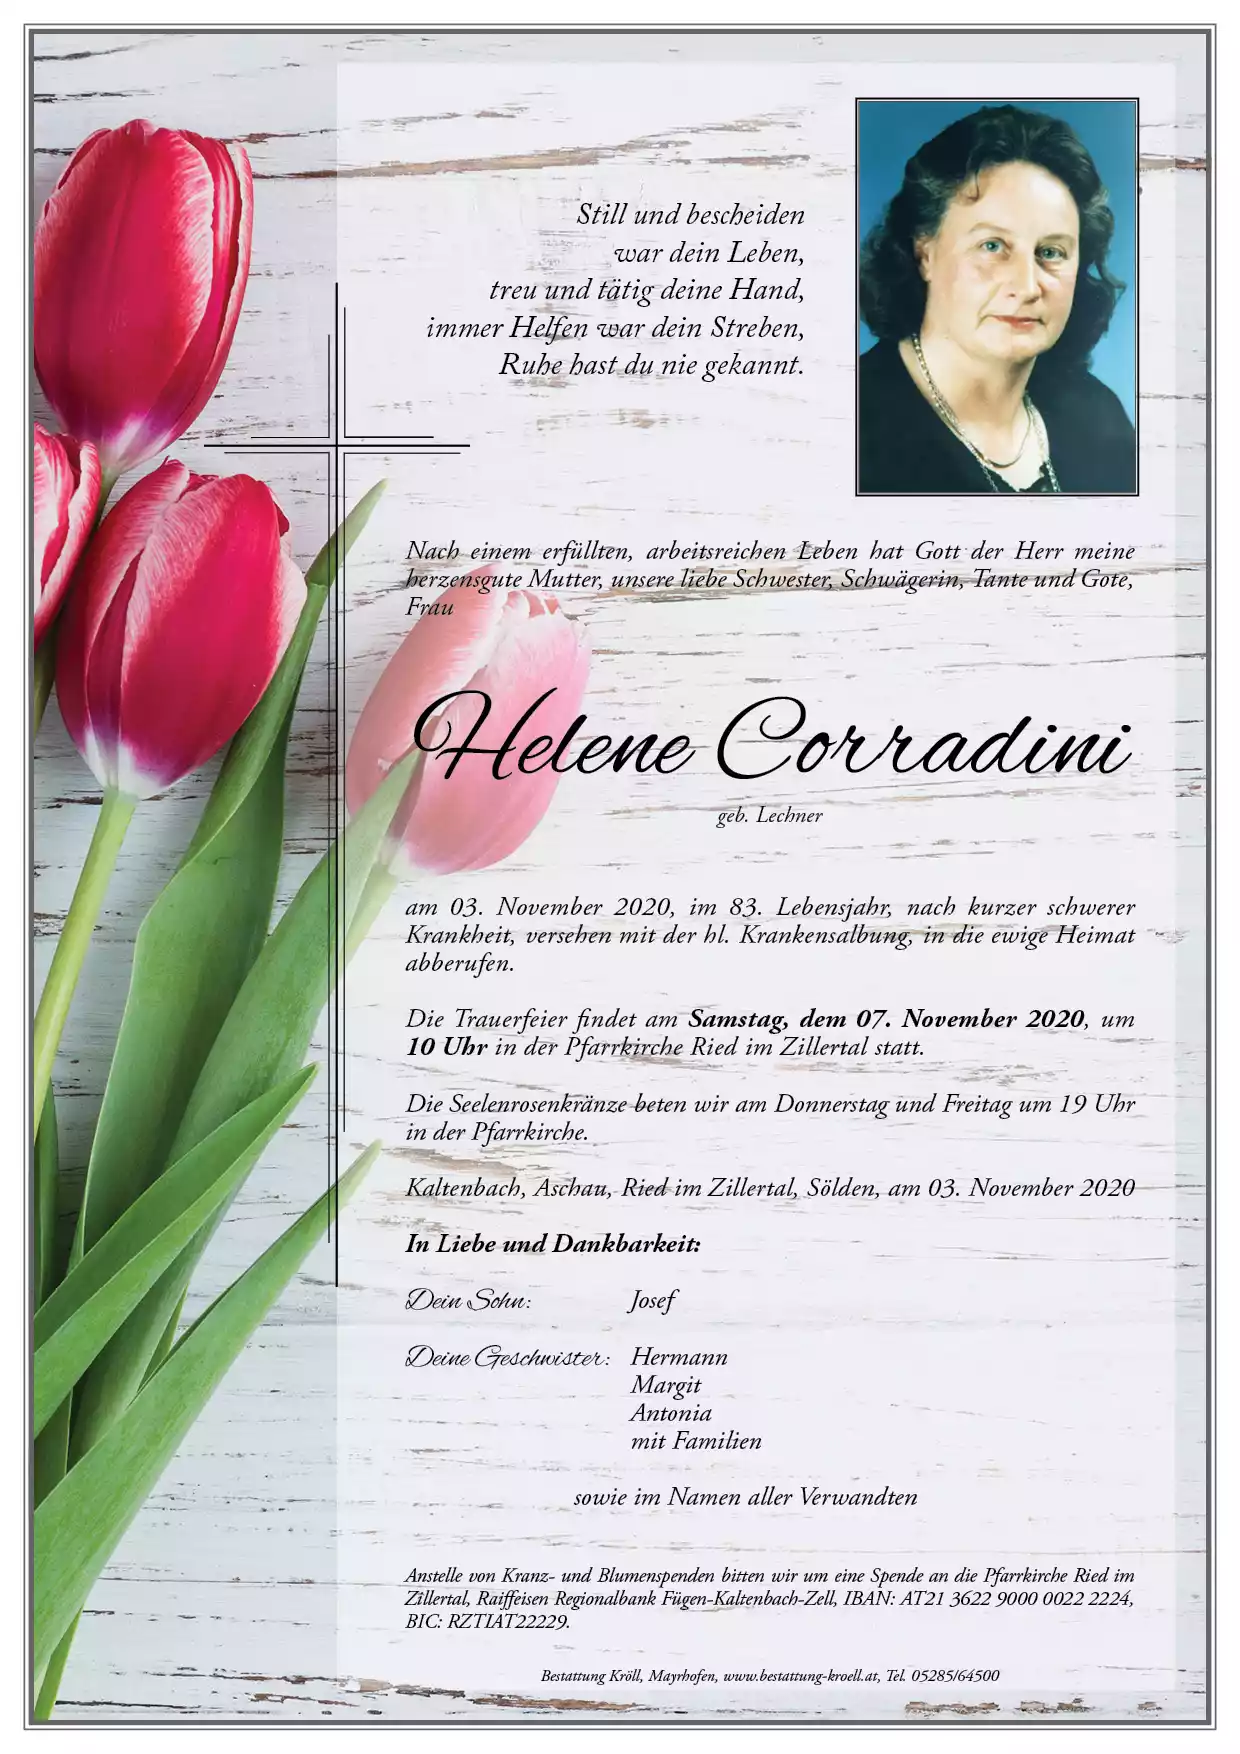 Still und bescheiden
war dein Leben,
treu und tätig deine Hand,
immer Helfen war dein Streben,
Ruhe hast du nie gekannt.
Nach einem erfüllten, arbeitsreichen Leben hat Gott der Herr meine
herzensgute Mutter, unsere liebe Schwester, Schwägerin, Tante und Gote,
Frau
Helene Corradini
geb. Lechner
am 03. November 2020, im 83. Lebensjahr, nach kurzer schwerer
Krankheit, versehen mit der hl. Krankensalbung, in die ewige Heimat
abberufen.
Die Trauerfeier findet am Samstag, dem 07. November 2020, um
10 Uhr in der Pfarrkirche Ried im Zillertal statt.
Die Seelenrosenkränze beten wir am Donnerstag und Freitag um 19 Uhr
in der Pfarrkirche.
Kaltenbach, Aschau, Ried im Zillertal, Sölden, am 03. November 2020
In Liebe und Dankbarkeit:
Dein Sohn: Josef
Deine Geschwister: Hermann
Margit
Antonia
mit Familien
sowie im Namen aller Verwandten
Anstelle von Kranz- und Blumenspenden bitten wir um eine Spende an die Pfarrkirche Ried im
Zillertal, Raiffeisen Regionalbank Fügen-Kaltenbach-Zell, IBAN: AT21 3622 9000 0022 2224,
BIC: RZTIAT22229.
Bestattung Kröll, Mayrhofen, www.bestattung-kroell.at, Tel. 05285/64500